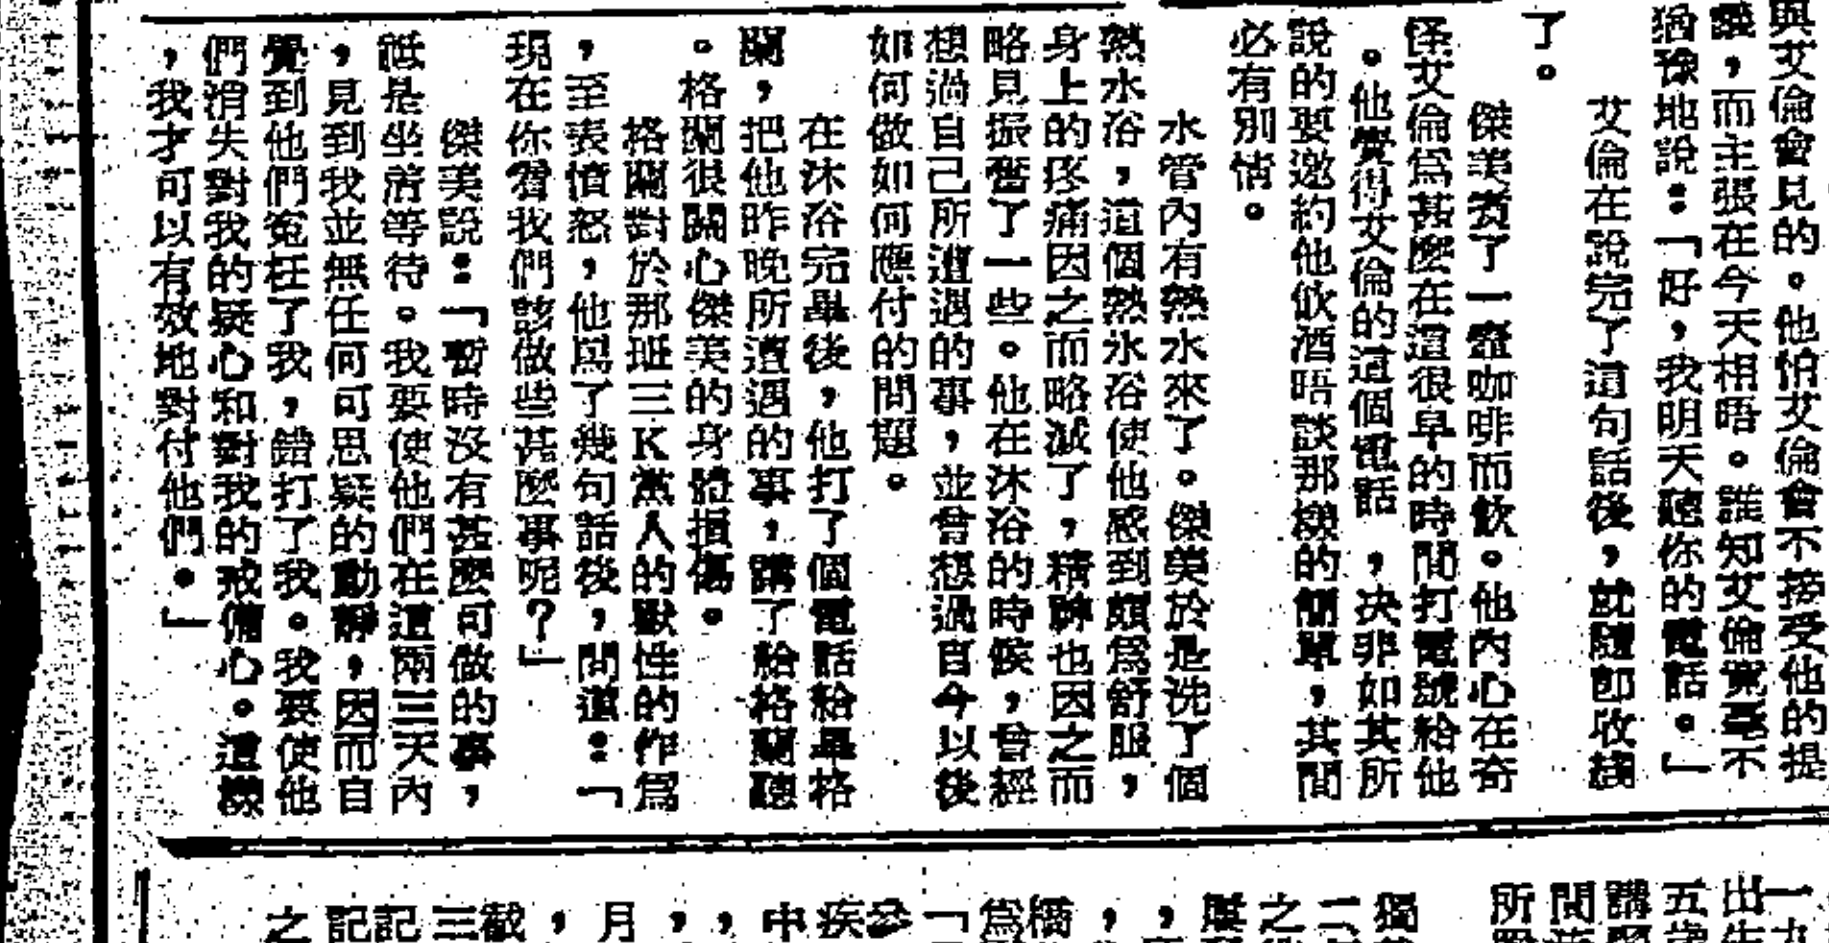 與艾倫會見的。他怕艾倫會不接受他的提
議，而主張在今天相晤。誰知艾倫竟毫不
猶豫地說：「好，我明天聽你的電話。」
艾倫在說完了這句話後，就隨即收綫
了。
傑美煑了一壼咖啡而飲。他內心在奇
怪艾倫爲甚麼在這很早的時間打電號給他
。他覺得艾倫的這個電話，决非如其所
說的要邀約他飲酒晤談那樣的簡單，其間
必有別情。
水管內有熱水來了。傑美於是洗了個
熱水浴，這個熱水浴使他感到頗爲舒服，
身上的疼痛因之而略減了，精神也因之而
略見振奮了一些。他在沐浴的時候，曾經
想過自己所遭遇的事，並曾想過自今以後
如何做如何應付的問題。
在沐浴完畢後，他打了個電話給畢格
蘭，把他昨晚所遭遇的事，講了給格蘭聽
。格蘭很關心傑美的身體損傷。
格蘭對於那班三K黨人的獸性的作爲
，至表憤怒，他罵了幾句話後，問道：「
現在你看我們該做些甚麼事呢？」
傑美說：「暫時沒有甚麼可做的事，
祗是坐着等待。我要使他們在這兩三天內
，見到我並無任何可思疑的動靜，因而自
覺到他們寃枉了我，錯打了我。我要使他
們消失對我的疑心和對我的戒備心。這樣
，我才可以有效地對付他們。」